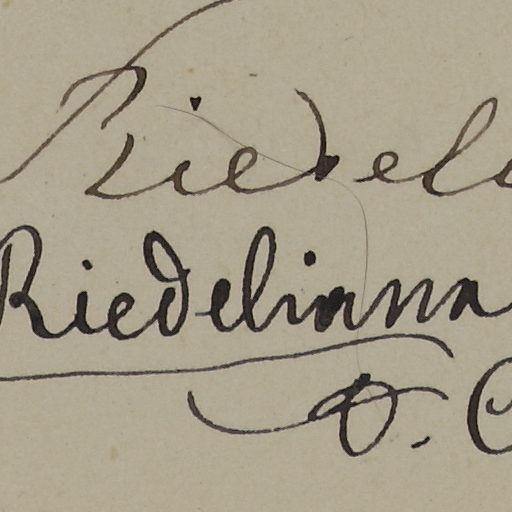 Riedel
Riedeliana
O. C